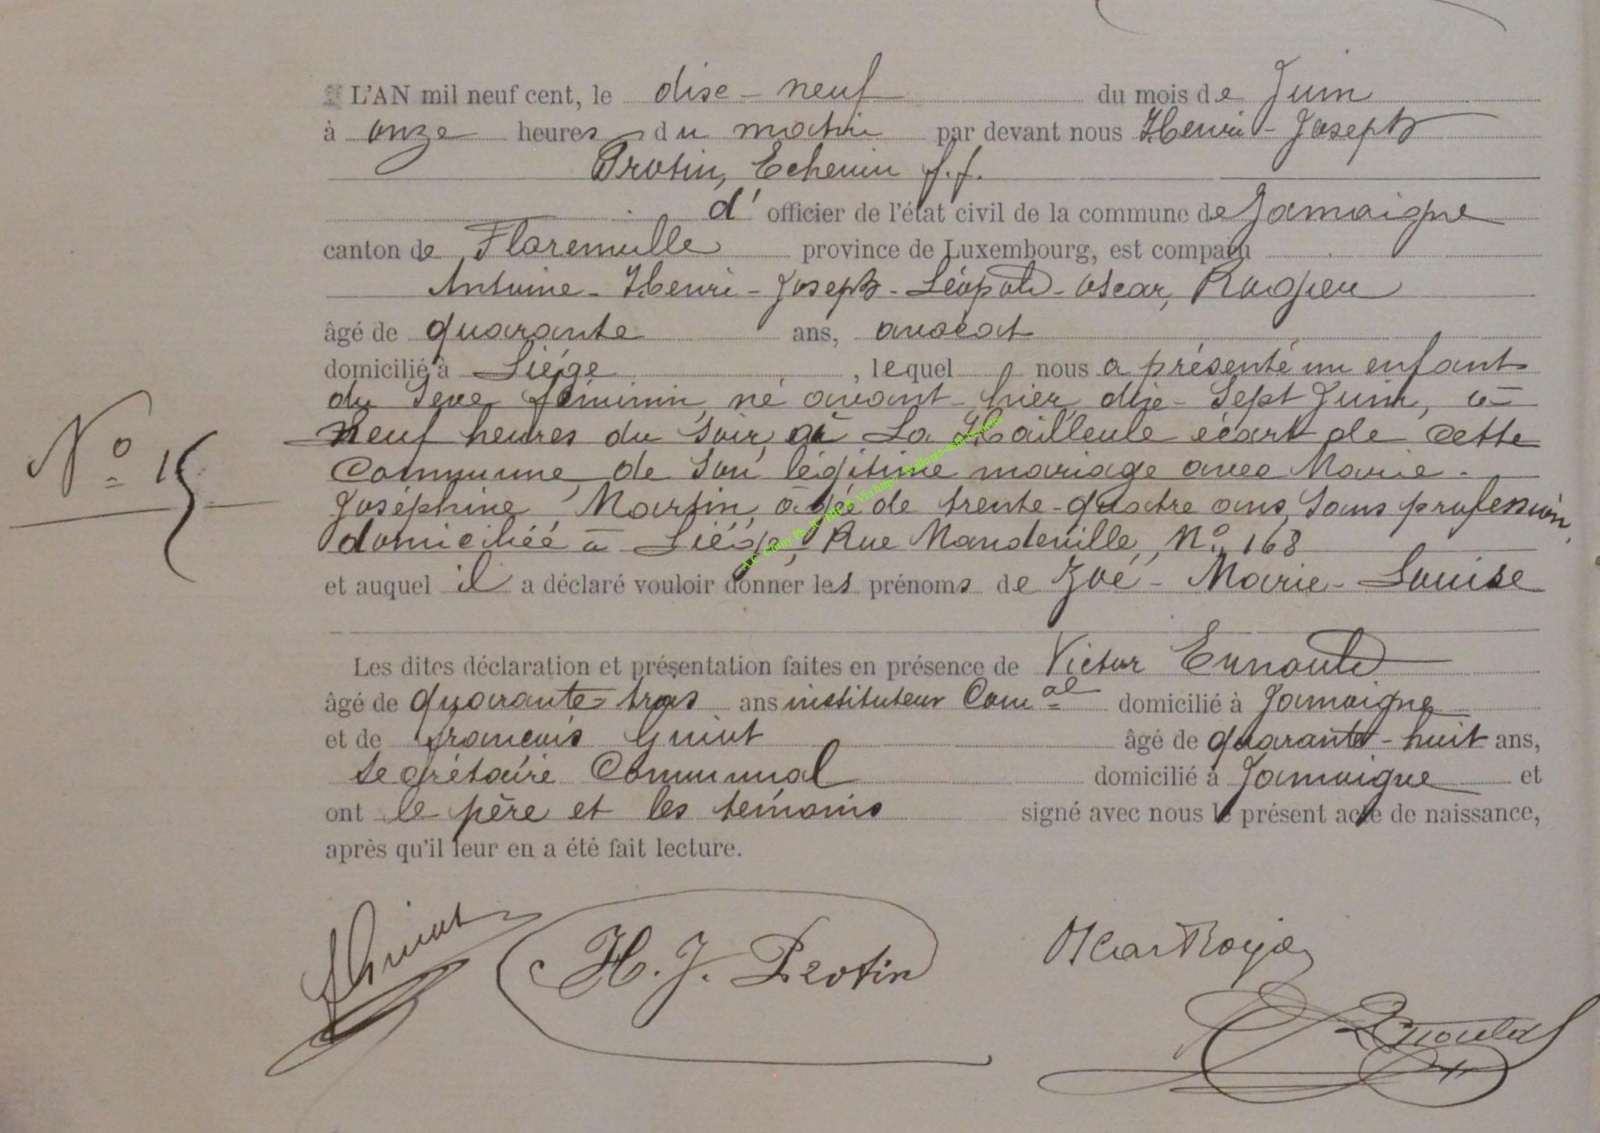 L'AN mil neuf cent, le dise-neuf du mois de Juin
à onze heures du matin par devant nous Henri-Joseph
Protin, Echevin f.f.
d' officier de l'état civil de la commune de Jamoigne
canton de Florenville province de Luxembourg, est comparu
Antoine-Henri-Joseph-Léopold-Oscar,
âgé de quarante ans, avocat
domicilié à Liége, lequel nous a présenté un enfant
du sexe féminin, né avant-hier, dix-sept Juin, à
neuf heures du soir, à La Hailleule écart de cette
commune, de son légitime mariage avec Marie-
Joséphine Martin, âgée de trente-quatre ans, sans profession,
domiciliée à Liége, Rue Mandeville, N.o 168
N.o 15
et auquel il a déclaré vouloir donner les prénoms de Zoé-Marie-Louise
Les dites déclaration et présentation faites en présence de Victor
âgé de quarante-trois ans instituteur Com.al domicilié à Jamoigne
et de françois Guiot âgé de quarante-huit ans,
segrétaire Communal domicilié à Jamoigne et
ont le père et les témoins signé avec nous le présent acte de naissance,
après qu'il leur en a été fait lecture.
Guiot H. J. Protin Oscar